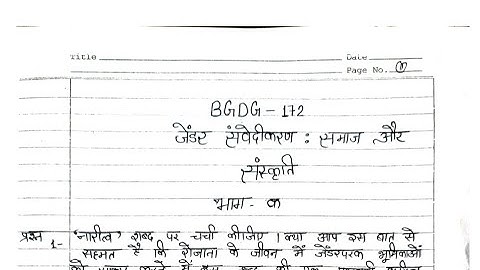 Title
Date
Page No. 1
BGDG - 172
जेंडर संवेदीकरण : समाज और
संस्कृति
भाग - क
प्रश्न 1- 'नारीत्व' शब्द पर चर्चा कीजिए । क्या आप इस बात से
सहमत है कि रोजाना के जीवन में जेंडरपरक भूमिकाओं